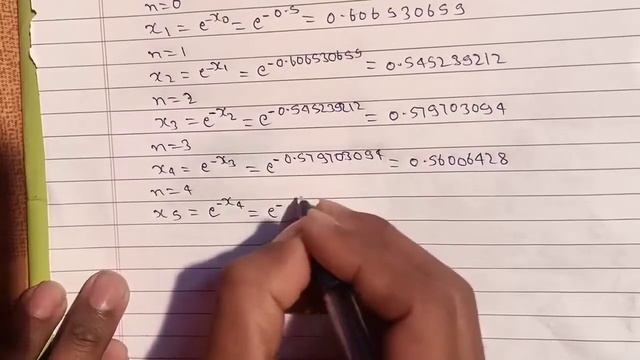 n=0
x₁ = e^-x₀ = e^-0.5 = 0.606530659
n=1
x₂ = e^-x₁ = e^-0.606530659 = 0.545239212
n=2
x₃ = e^-x₂ = e^-0.545239212 = 0.579703094
n=3
x₄ = e^-x₃ = e^-0.579703094 = 0.56006428
n=4
x₅ = e^-x₄ = e^-